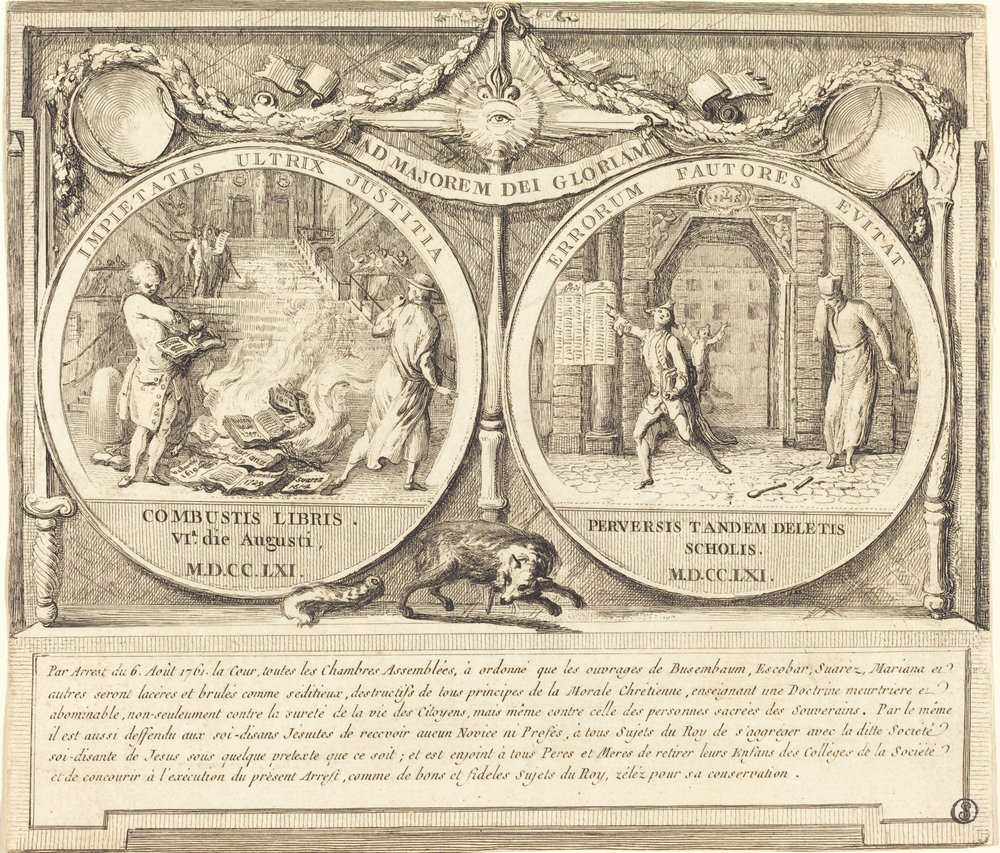 AD MAJOREM DEI GLORIAM
IMPIETATIS ULTRIX JUSTITIA
Suarez
COMBUSTIS LIBRIS.
VIᵃ. die Augusti,
M.D.CC.LXI.
ERRORUM FAUTORES EVITAT
PERVERSIS TANDEM DELETIS
SCHOLIS.
M.D.CC.LXI.
Par Arrest du 6. Août 1761. la Cour, toutes les Chambres Assemblées, à ordonné que les ouvrages de Busembaum, Escobar, Suarez, Mariana et
autres seront lacérés et brulés comme seditieux, destructifs de tous principes de la Morale Chrétienne, enseignant une Doctrine meurtriere et
abominable, non-seuleument contre la sureté de la vie des Citoyens, mais même contre celle des personnes sacrées des Souverains. Par le même
il est aussi deffendu aux soi-disans Jesuites de recevoir aucun Novice ni Profès, à tous Sujets du Roy de s'aggréger avec la ditte Societé
soi-disante de Jesus sous quelque pretexte que ce soit ; et est enjoint à tous Peres et Meres de retirer leurs Enfans des Colléges de la Societé
et de concourir à l'execution du present Arrest, comme de bons et fideles Sujets du Roy, zéléz pour sa conservation.